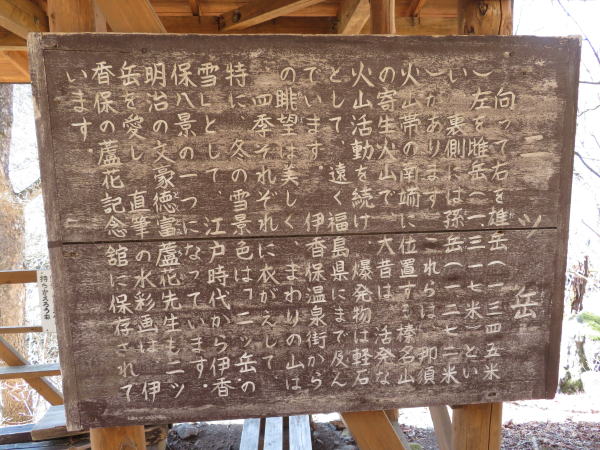 二ツ岳
向って右を雄岳(一三四五米
)左を雌岳(一、三一七米)とい
い、裏側には孫岳(一一二七二米
)があります。これらは、那須
火山帯の南端に位置する榛名山
の寄生火山で、大昔は、活発な
火山活動を続け、爆発物は軽石
として、遠く福島県にまで及ん
でいます。伊香保温泉街から
の眺望は美しく、まわりの山は
四季それぞれに衣がえして
特に、冬の雪景色は「二ッ岳の
雪」として、江戸時代から伊香
保八景の一つになっています。
明治の文豪徳富蘆花先生も二ツ
岳を愛し、直筆の水彩画は、伊
香保の蘆花記念舘に保存されて
います。
持ちかえろう